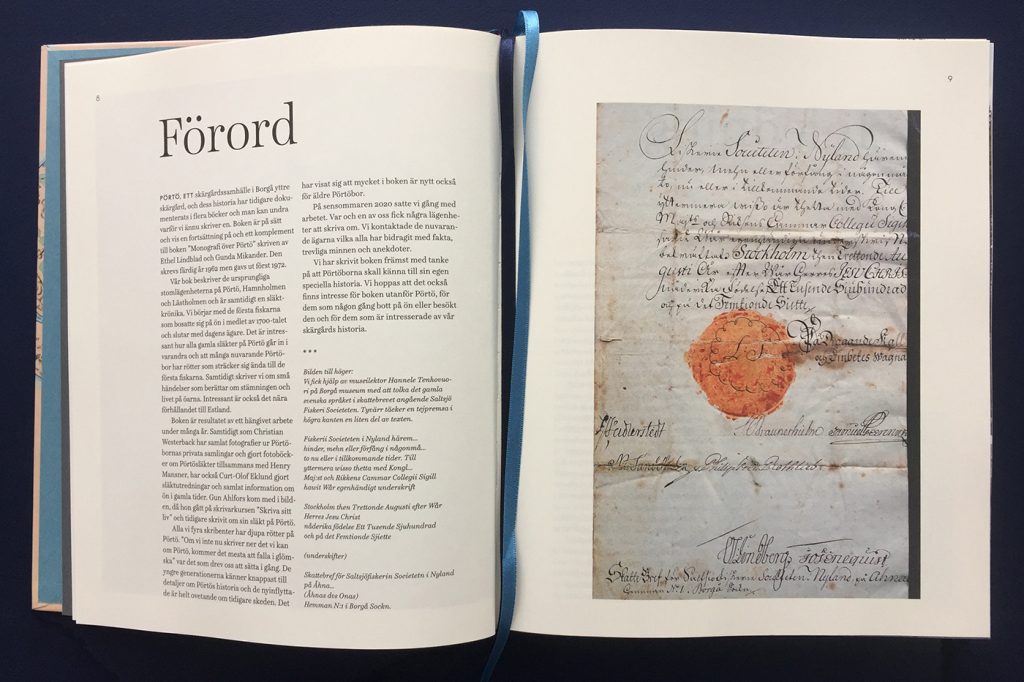 8
Förord
PÖRTÖ, ETT skärgårdssamhälle i Borgå yttre
skärgård, och dess historia har tidigare doku-
menterats i flera böcker och man kan undra
varför vi ännu skriver en. Boken är på sätt
och vis en fortsättning på och ett komplement
till boken "Monografi över Pörtö" skriven av
Ethel Lindblad och Gunda Mikander. Den
skrevs färdig år 1962 men gavs ut först 1972.
Vår bok beskriver de ursprungliga
stomlägenheterna på Pörtö, Hamnholmen
och Låstholmen och är samtidigt en släkt-
krönika. Vi börjar med de första fiskarna
som bosatte sig på ön i medlet av 1700-talet
och slutar med dagens ägare. Det är intres-
sant hur alla gamla släkter på Pörtö går in i
varandra och att många nuvarande Pörtö-
bor har rötter som sträcker sig ända till de
första fiskarna. Samtidigt skriver vi om små
händelser som berättar om stämningen och
livet på öarna. Intressant är också det nära
förhållandet till Estland.
Boken är resultatet av ett hängivet arbete
under många år. Samtidigt som Christian
Westerback har samlat fotografier ur Pörtö-
bornas privata samlingar och gjort fotoböck-
er om Pörtösläkter tillsammans med Henry
Mansner, har också Curt-Olof Eklund gjort
släktutredningar och samlat information om
ön i gamla tider. Gun Ahlfors kom med i bild-
en, då hon gått på skrivarkursen "Skriva sitt
liv" och tidigare skrivit om sin släkt på Pörtö.
Alla vi fyra skribenter har djupa rötter på
Pörtö. "Om vi inte nu skriver ner det vi kan
om Pörtö, kommer det mesta att falla i glöm-
ska" var det som drev oss att sätta i gång. De
yngre generationerna känner knappast till
detaljer om Pörtös historia och de nyinflytta-
de är helt ovetande om tidigare skeden. Det
har visat sig att mycket i boken är nytt också
för äldre Pörtöbor.
På sensommaren 2020 satte vi gång med
arbetet. Var och en av oss fick några lägenhe-
ter att skriva om. Vi kontaktade de nuvaran-
de ägarna vilka alla har bidragit med fakta,
trevliga minnen och anekdoter.
Vi har skrivit boken främst med tanke
på att Pörtöborna skall känna till sin egen
speciella historia. Vi hoppas att det också
finns intresse för boken utanför Pörtö, för
dem som någon gång bott på ön eller besökt
den och för dem som är intresserade av vår
skärgårds historia.
***
Bilden till höger:
Vi fick hjälp av museilektor Hannele Tenhovuo-
ri på Borgå museum med att tolka det gamla
svenska språket i skattebrevet angående Saltsjö
Fiskeri Societeten. Tyvärr täcker en tejpremsa i
högra kanten en liten del av texten.
Fiskerii Societeten i Nyland härem...
hinder, mehn eller förfång i någonmå...
to nu eller i tillkommande tider. Till
yttermera wisso thetta med Kongl...
Maj:st och Rikkens Cammar Collegii Sigill
hawit Wår egenhändigt underskrift
Stockholm then Trettonde Augusti efter Wår
Herres Jesu Christ
nåderika födelse Ett Tusende Sjuhundrad
och på det Femtionde Sjiette
(underskifter)
Skattebref för Saltsjöfiskerin Societetn i Nyland
på Åhna...
(Åhnas des Onas)
Hemman N:1 i Borgå Sockn.
9
Societeten i Nyland
hinder, mehn eller förfång i någon
to, nu eller i tillkommande tider. Till
yttermera wisso thetta med Kongl
Majts och Rikens Cammar Collegii Sigill
Stockholm then Trettonde Au
gusti efter Wår Herres JESU CHRIST
födelse Ett Tusende Siuhundrad
och på det Femtionde Siette
L S